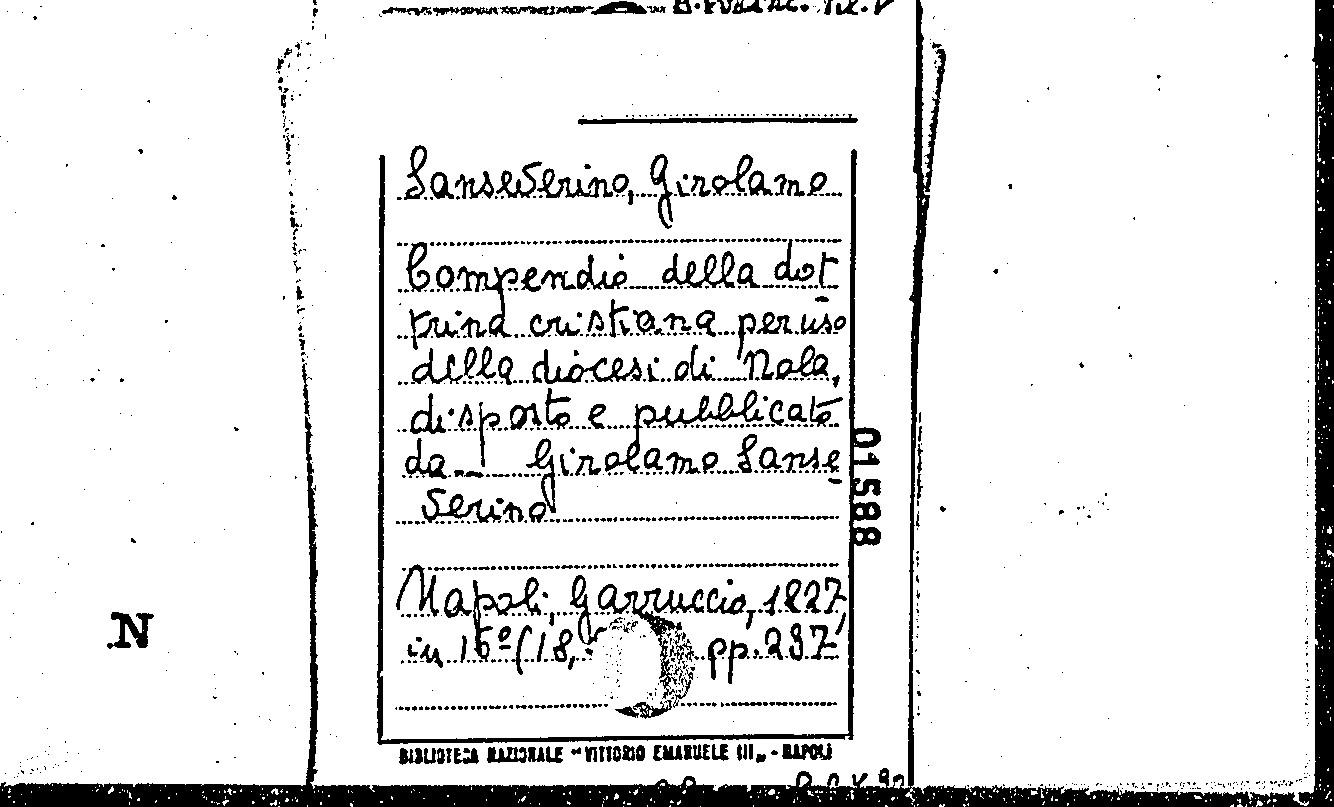 Sanseverino, Girolamo
Compendio della dot
trina cristiana per uso
della diocesi di Nola,
disposto e pubblicato
da... Girolamo Sanse
verino
Napoli, Garruccio, 1827,
in 16º (18, pp. 237
01588
.N
BIBLIOTECA NAZIONALE "VITTORIO EMANUELE III" - NAPOLI